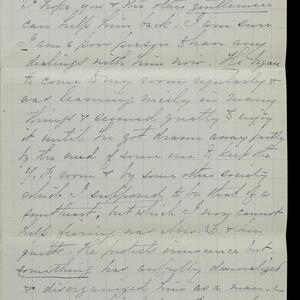 I hope you & the other gentlemen
can help him back. I am sure
I am a poor person to have any
dealings with him now. He began
to come to my room regularly &
was learning nicely in many
things & seemed greatly to enjoy
it until he got drawn away partly
by the need of some one to keep the
Y. P. room & by some other society
which I supposed to be that of a
sweetheart, but which I now cannot
help fearing was Mrs. C. & her
guests. He protests innocence but
something has awfully demoralized
& disorganized him as a man, a